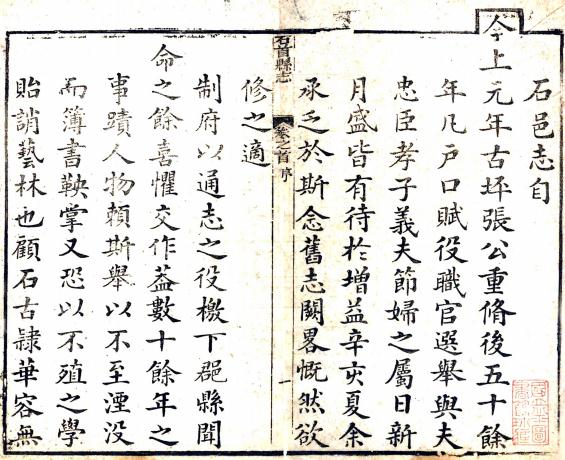 石邑志自
今上元年古坪張公重脩後五十餘
年凡戶口賦役職官選舉與夫
忠臣孝子義夫節婦之屬日新
月盛皆有待於增益辛亥夏余
承乏於斯念舊志闕畧慨然欲
石首縣志 卷之首 序 一
修之適
制府以通志之役檄下郡縣聞
命之餘喜懼交作葢數十餘年之
事蹟人物賴斯舉以不至湮没
而簿書鞅掌又恐以不殖之學
貽誚藝林也顧石古隷華容無